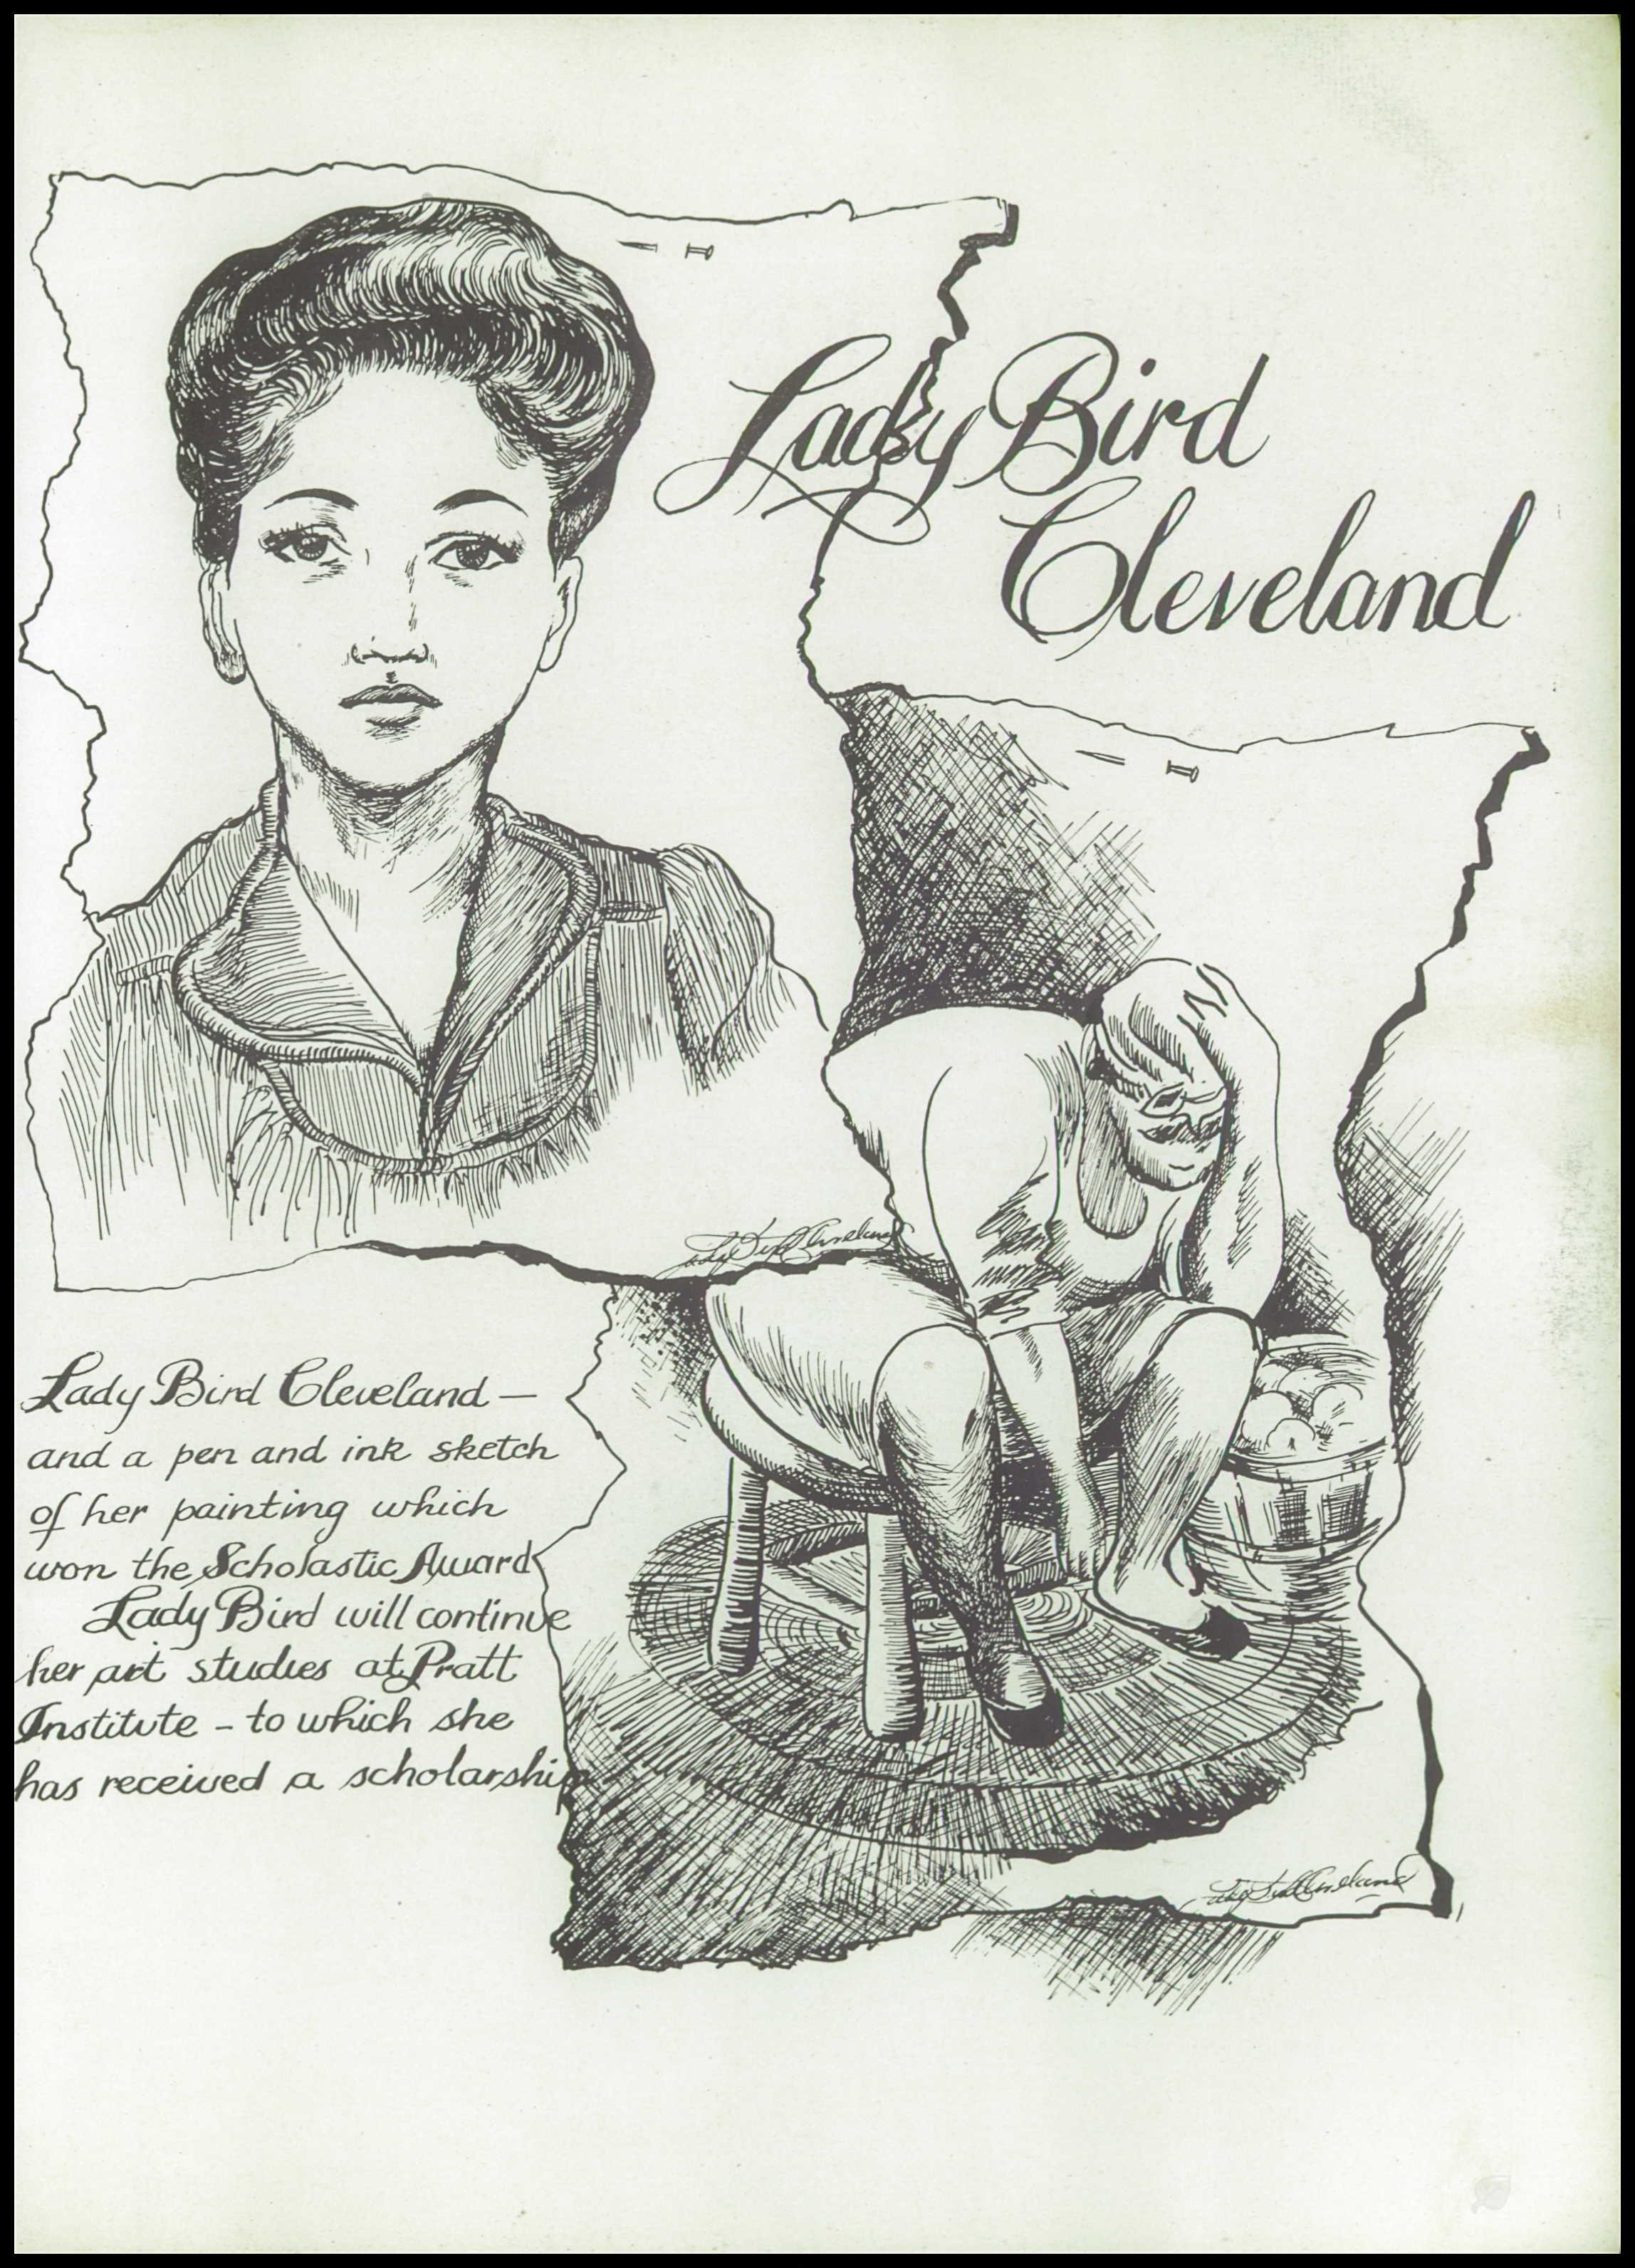 Lady Bird
Cleveland
Lady Bird Cleveland
Lady Bird Cleveland —
and a pen and ink sketch
of her painting which
won the Scholastic Award
Lady Bird will continue
her art studies at Pratt
Institute - to which she
has received a scholarship
Lady Bird Cleveland